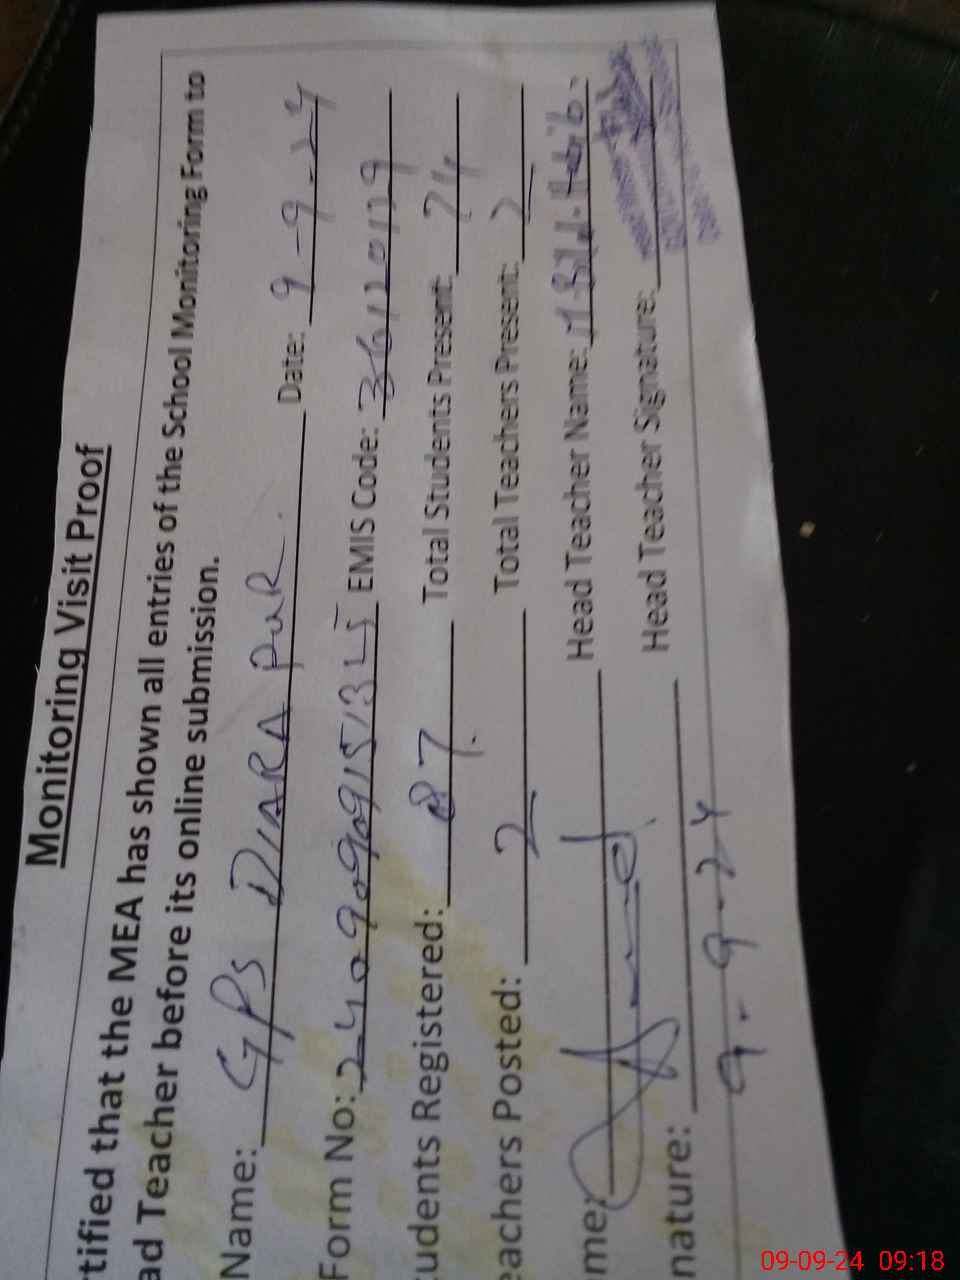 Monitoring Visit Proof
tified that the MEA has shown all entries of the School Monitoring Form to
ad Teacher before its online submission.
Name: GPS DIARA PUR. Date: 9-9-24
Form No: 24090909151345 EMIS Code: 36120129
udents Registered: 87 Total Students Present: 74
eachers Posted: 2 Total Teachers Present: 2
me: Head Teacher Name:
nature: Head Teacher Signature:
9-9-24
09-09-24 09:18